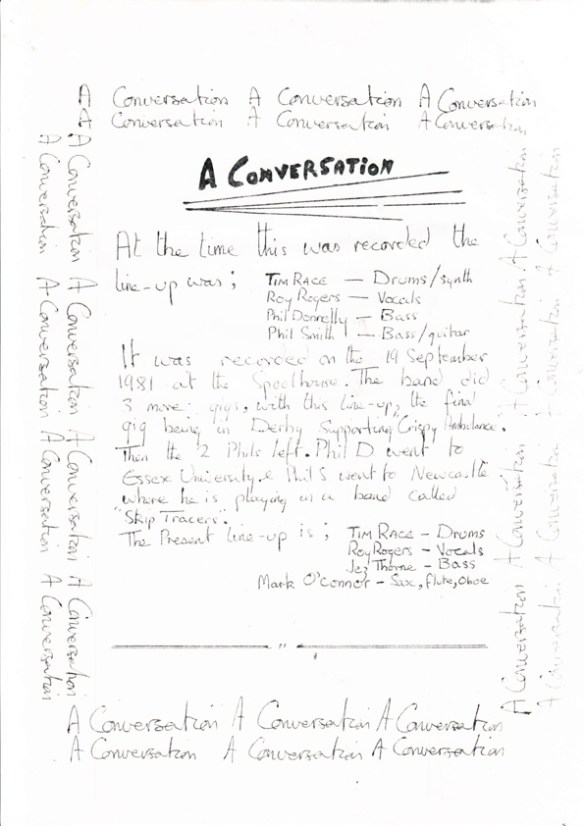 A Conversation A Conversation A Conversation
A Conversation A Conversation A Conversation
A Conversation A Conversation A Conversation A Conversation
A Conversation A Conversation A Conversation A Conversation
A CONVERSATION
At the time this was recorded the
line-up was; TIM RACE — Drums/synth
Roy Rogers — Vocals
Phil Donnelly — Bass
Phil Smith — Bass/guitar
It was recorded on the 19 September
1981 at the Spoolhouse. The band did
3 more gigs, with this line-up, the final
gig being in Derby Supporting Crispy Ambulance.
Then the 2 Phils left. Phil D went to
Essex University & Phil S went to Newcastle
where he is playing in a band called
"Skip Tracers".
The Present line-up is; TIM RACE - Drums
Roy Rogers - Vocals
Jez Thorne - Bass
Mark O'Connor - Sax, flute, Oboe
A Conversation A Conversation A Conversation A Conversation
A Conversation A Conversation A Conversation A Conversation
A Conversation A Conversation A Conversation
A Conversation A Conversation A Conversation